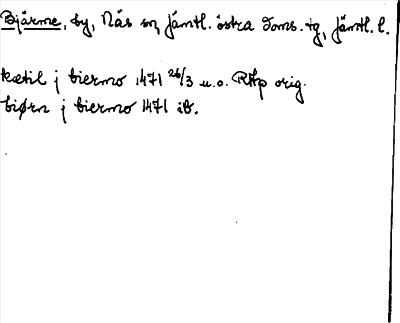 Bjärme, by, Näs sn, Jämtl. östra doms. tg, Jämtl. l.
ketil j biermo 1471 26/3 u.o. RAp orig.
biørn j biermo 1471 ib.